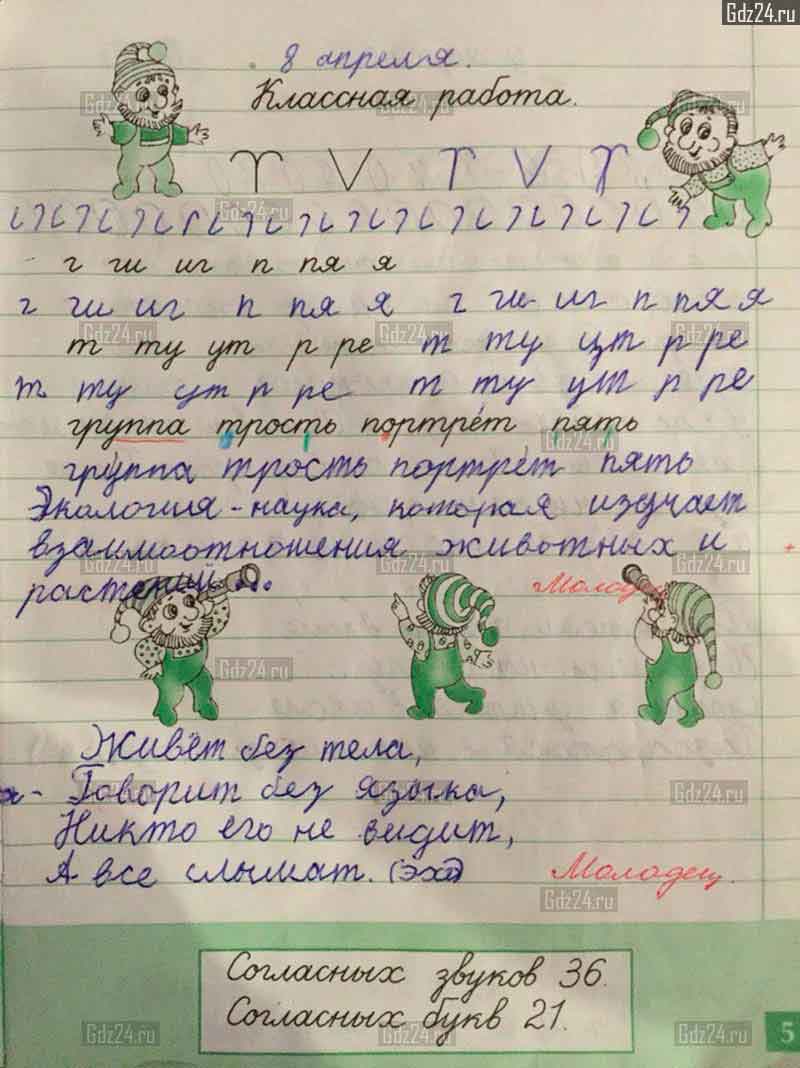 Gdz24.ru
8 апреля.
Классная работа.
г ги иг п пя я
г ги иг п пя я г ги иг п пя я
т ту ут р ре т ту ут р ре
т ту ут р ре т ту ут р ре
группа трость портрет пять
группа трость портрет пять
Экология - наука, которая изучает
взаимоотношения животных и
растений ...
Молодец
Живёт без тела,
Говорит без языка,
Никто его не видит,
А все слышат. (Эхо)
Молодец.
Согласных звуков 36.
Согласных букв 21.
5